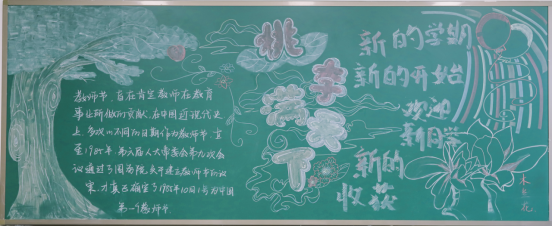 教师节，旨在肯定教师在教育
事业所做的贡献。在中国近现代史
上，多次以不同的日期作为教师节。直
至1985年，第六届人大常委会第九次会
议通过了国务院关于建立教师节的议
案，才真正确定了1985年10月1号为中国
第一个教师节
桃李满天下
新的学期
新的开始
欢迎
新同学
新的
收获
木兰花